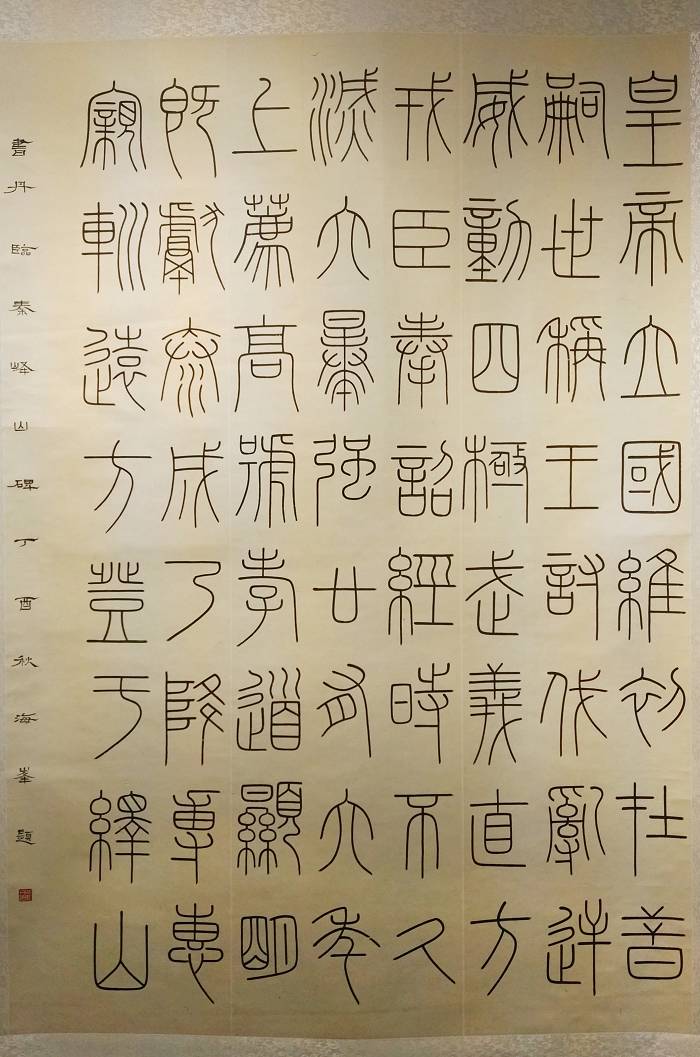 皇帝立國維初在昔
嗣世稱王討伐亂逆
威動四極武義直方
戎臣奉詔經時不久
滅六暴强廿有六年
上薦高號孝道顯明
既獻泰成乃降專惠
寴巡遠方登于繹山
書丹臨秦嶧山碑丁酉秋海峯題